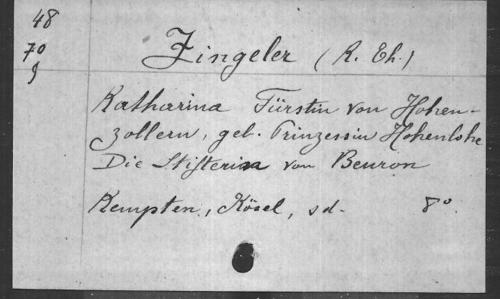 48
70
g
Zingeler (K. Th.)
Katharina Fürstin von Hohen-
zollern, geb. Prinzessin Hohenlohe
Die Stifterin von Beuron
Kempten, Kösel, s d. 8°.